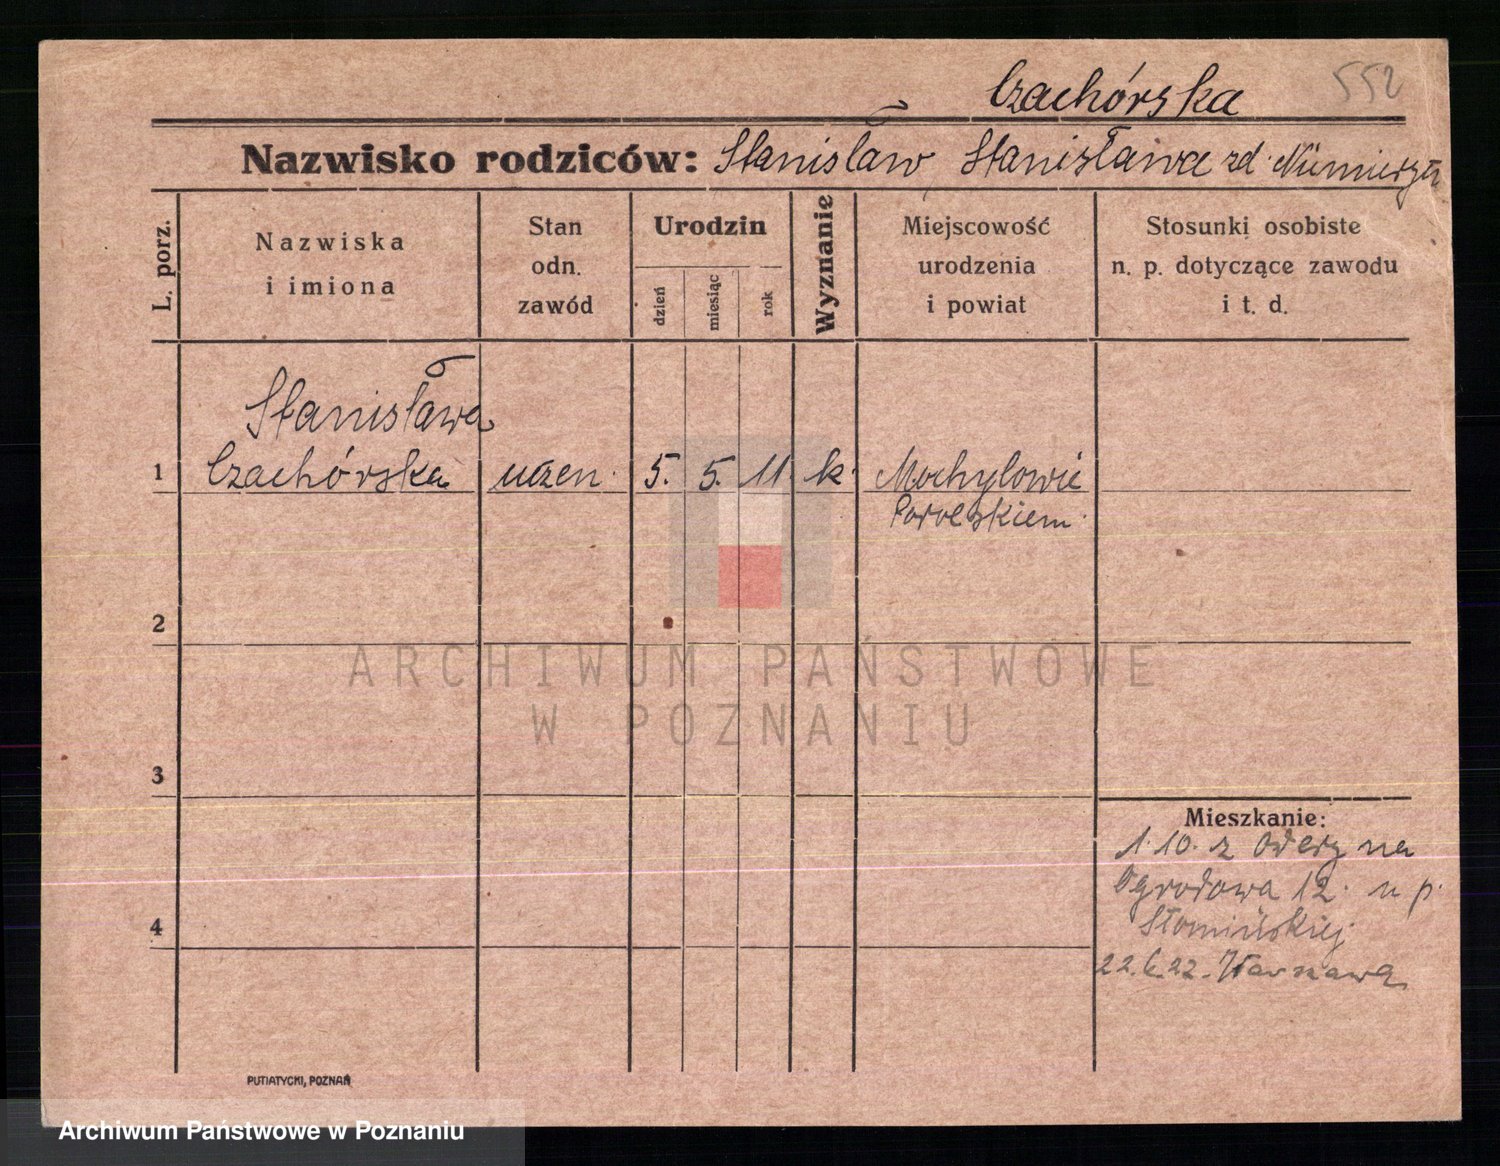 Czachórska 552
Nazwisko rodziców: Stanisław, Stanisława zd.
L. porz.
Nazwiska
i imiona
Stan
odn.
zawód
Urodzin
dzień
miesiąc
rok
Wyznanie
Miejscowość
urodzenia
i powiat
Stosunki osobiste
n. p. dotyczące zawodu
i t. d.
Stanisława
1 Czachórska uczen. 5. 5. 11. k.
2
3
4
Mieszkanie:
1.10. z na
Ogrodowa 12. u p.
Słomińskiej
Warszawa
PUTIATYCKI, POZNAŃ
ARCHIWUM PAŃSTWOWE
W POZNANIU
Archiwum Państwowe w Poznaniu